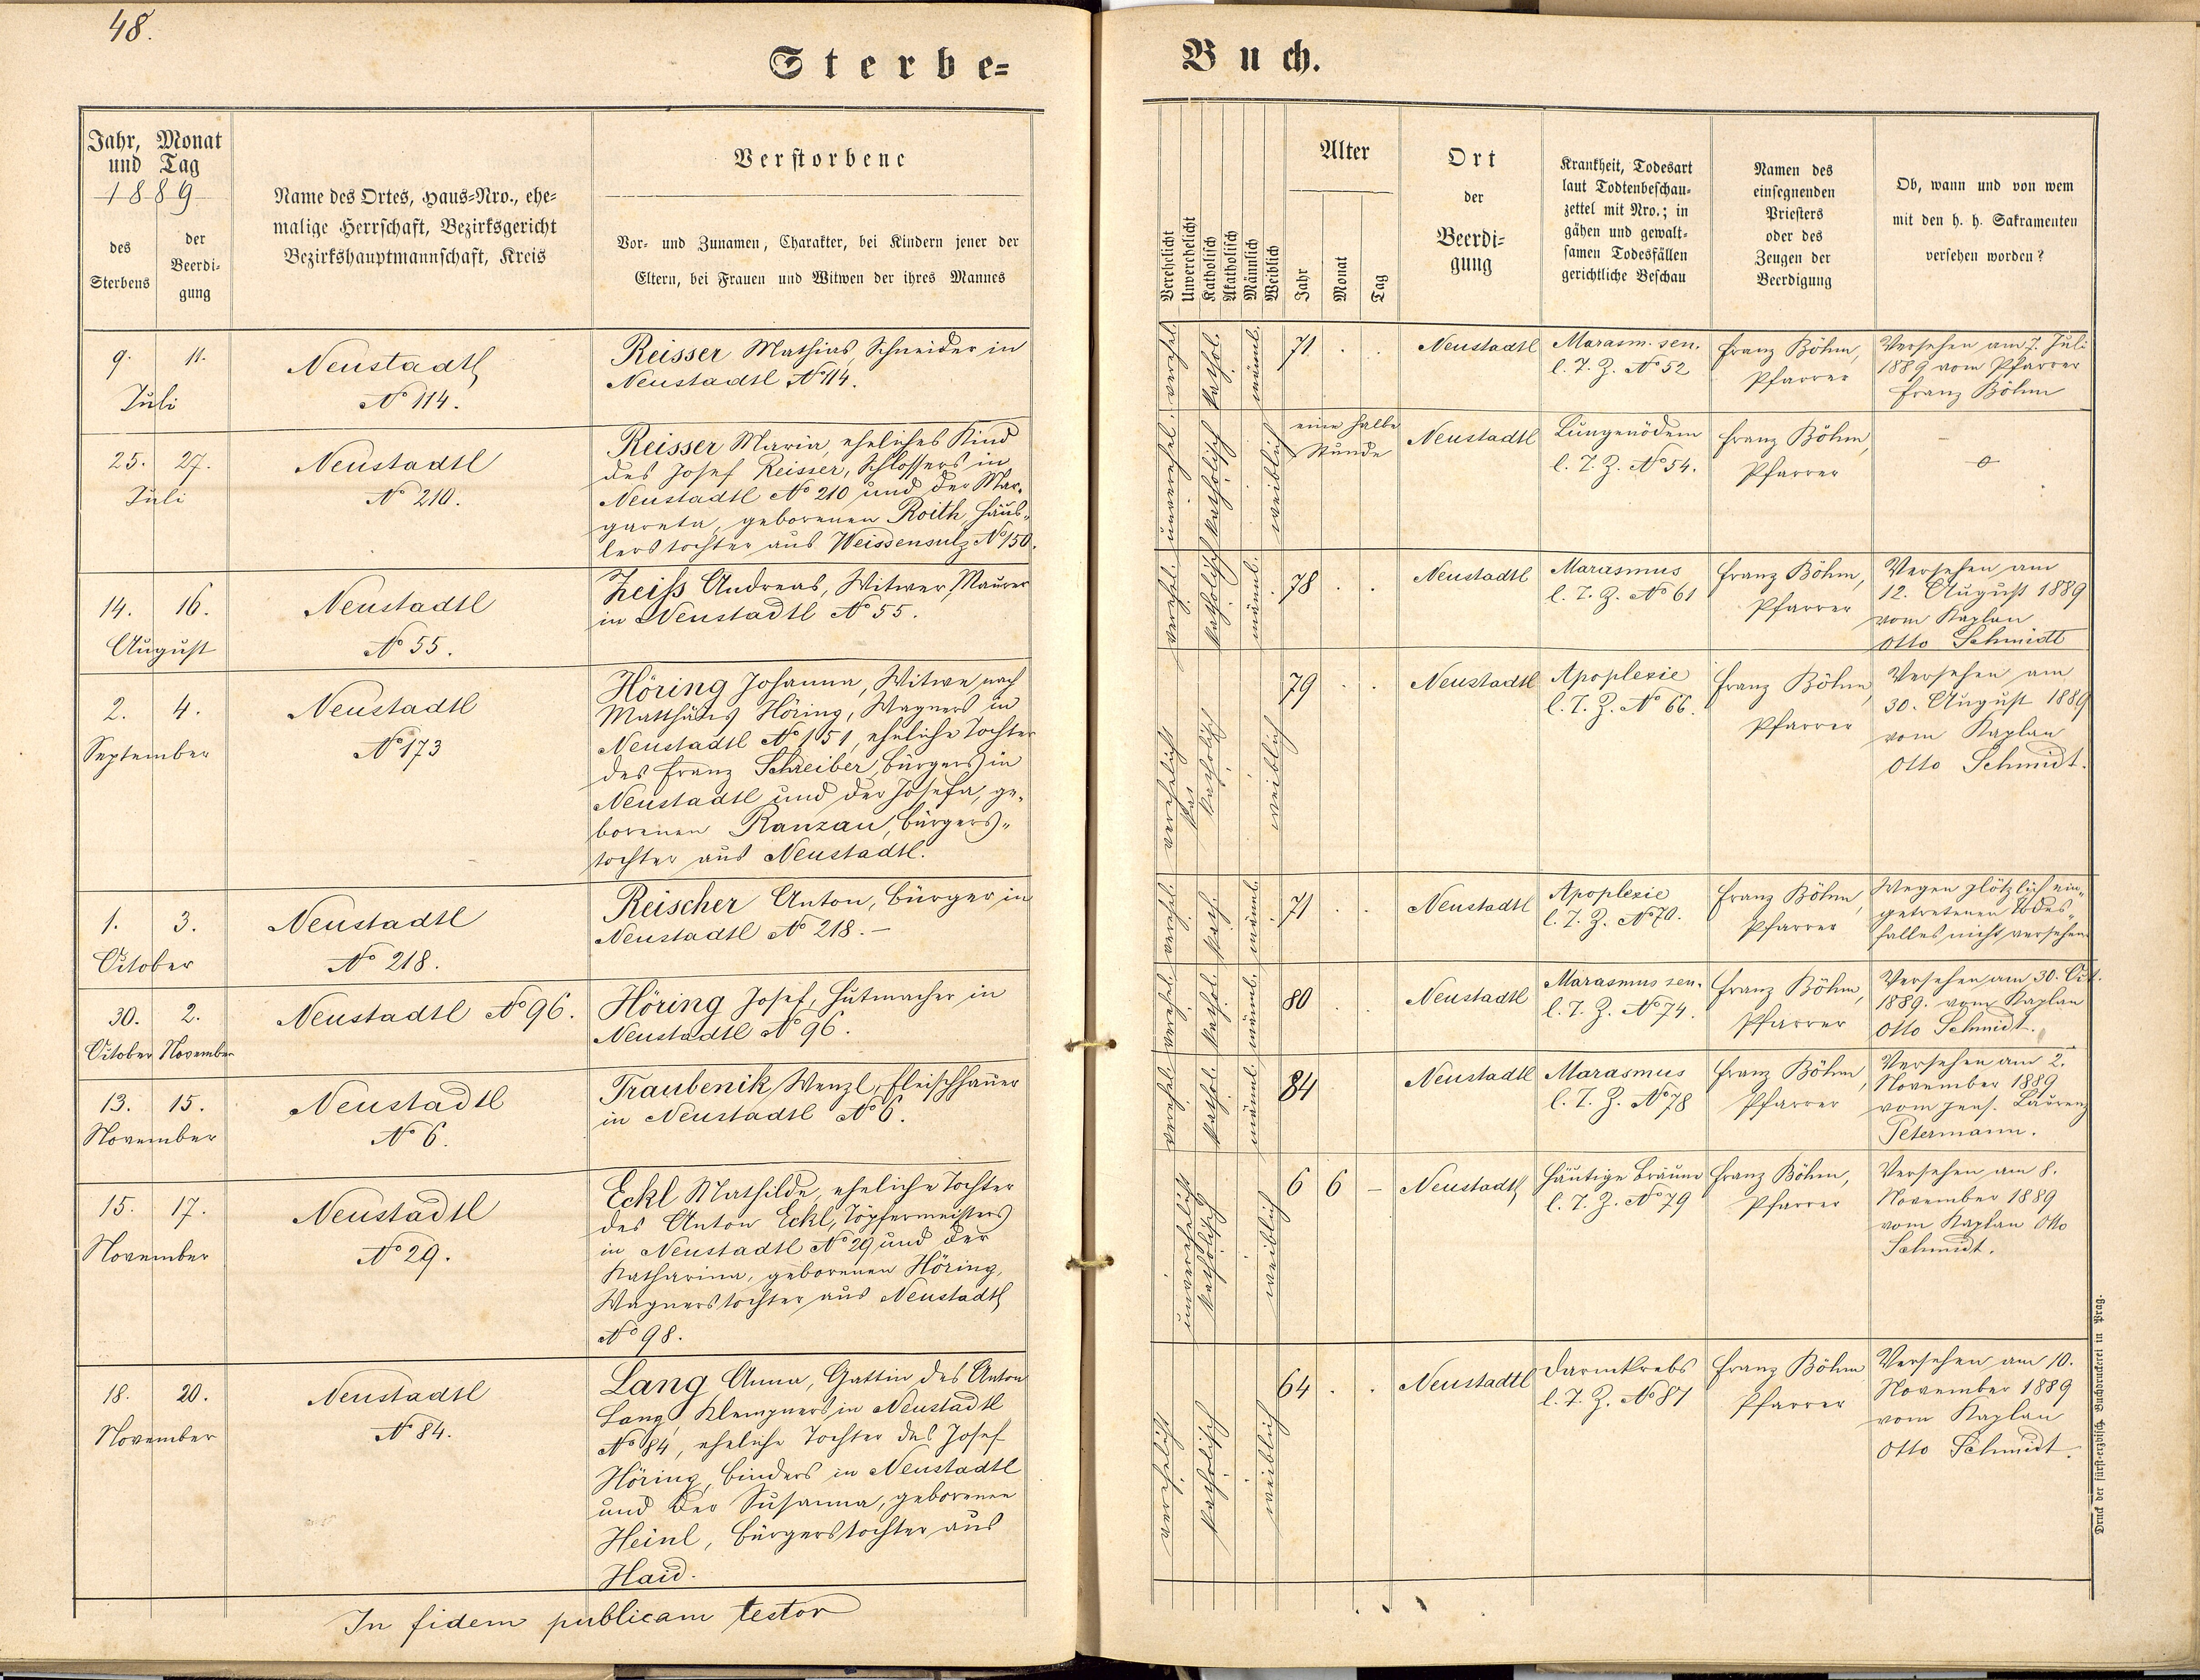 48.
Sterbe=
Buch.
Jahr, Monat
und Tag
1889
des
Sterbens
der
Beerdi-
gung
Name des Ortes, Haus-Nro., ehe-
malige Herrschaft, Bezirksgericht
Bezirkshauptmannschaft, Kreis
Verstorbene
Vor- und Zunamen, Charakter, bei Kindern jener der
Eltern, bei Frauen und Witwen der ihres Mannes
Verehelicht
Unverehelicht
Katholisch
Akatholisch
Männlich
Weiblich
Alter
Jahr
Monat
Tag
Ort
der
Beerdi-
gung
Krankheit, Todesart
laut Todtenbeschau-
zettel mit Nro.; in
gähen und gewalt-
samen Todesfällen
gerichtliche Beschau
Namen des
einsegnenden
Priesters
oder des
Zeugen der
Beerdigung
Ob, wann und von wem
mit den h. h. Sakramenten
versehen worden?
9. 11.
Juli
Neustadtl
No 114.
Reisser Mathias, Schneider in
Neustadtl No 114.
verehel. kathol. männl.
71 . .
Neustadtl
Marasm. sen.
l. T. Z. No 52
Franz Böhm,
Pfarrer
Versehen am 7. Juli
1889 vom Pfarrer
Franz Böhm
25. 27.
Juli
Neustadtl
No 210.
Reisser Maria, eheliches Kind
des Josef Reisser, Schlossers in
Neustadtl No 210 und der Mar-
gareta, geborenen Roith, Häus-
lerstochter aus Weissensulz No 150.
unverehel. katholisch weiblich
eine halbe
Stunde
Neustadtl
Lungenödem
l. T. Z. No 54.
Franz Böhm,
Pfarrer
14. 16.
August
Neustadtl
No 55.
Zeiß Andreas, Witwer, Maurer
in Neustadtl No 55.
verehel. katholisch männl.
78 . .
Neustadtl
Marasmus
l. T. Z. No 61
Franz Böhm,
Pfarrer
Versehen am
12. August 1889
vom Kaplan
Otto Schmidt
2. 4.
September
Neustadtl
No 173
Höring Johanna, Witwe nach
Matthäus Höring, Wagners in
Neustadtl No 151, eheliche Tochter
des Franz Schreiber, Bürgers in
Neustadtl und der Josefa, ge-
borenen Ranzau, Bürgers-
tochter aus Neustadtl.
verehelicht katholisch weiblich
79 . .
Neustadtl
Apoplexie
l. T. Z. No 66.
Franz Böhm,
Pfarrer
Versehen am
30. August 1889
vom Kaplan
Otto Schmidt.
1. 3.
October
Neustadtl
No 218.
Reischer Anton, Bürger in
Neustadtl No 218. –
verehel. kath. männl.
71 . .
Neustadtl
Apoplexie
l. T. Z. No 70.
Franz Böhm,
Pfarrer
Wegen plötzlich ein-
getretenen Todes-
falles nicht versehen
30. 2.
October November
Neustadtl No 96.
Höring Josef, Hutmacher in
Neustadtl No 96.
verehel. kathol. männl.
80 . .
Neustadtl
Marasmus sen.
l. T. Z. No 74.
Franz Böhm,
Pfarrer
Versehen am 30. Oct.
1889. vom Kaplan
Otto Schmidt.
13. 15.
November
Neustadtl
No 6.
Traubenik Wenzl, Fleischhauer
in Neustadtl No 6.
verehel. kathol. männl.
84
Neustadtl
Marasmus
l. T. Z. No 78
Franz Böhm,
Pfarrer
Versehen am 2.
November 1889
vom pens. Laurenz
Petermann.
15. 17.
November
Neustadtl
No 29.
Eckl Mathilde, eheliche Tochter
des Anton Eckl, Töpfermeisters
in Neustadtl No 29 und der
Katharina, geborenen Höring,
Wagnerstochter aus Neustadtl
No 98.
unverehelicht katholisch weiblich
6 6 –
Neustadtl
Häutige Bräune
l. T. Z. No 79
Franz Böhm,
Pfarrer
Versehen am 8.
November 1889
vom Kaplan Otto
Schmidt.
18. 20.
November
Neustadtl
No 84.
Lang Anna, Gattin des Anton
Lang, Klempners in Neustadtl
No 84, eheliche Tochter des Josef
Höring, Binders in Neustadtl
und der Susanna, geborenen
Heinl, Bürgerstochter aus
Haid.
verehelicht katholisch weiblich
64 . .
Neustadtl
Darmkrebs
l. T. Z. No 81
Franz Böhm
Pfarrer
Versehen am 10.
November 1889
vom Kaplan
Otto Schmidt.
In fidem publicam testor
Druck der fürst-erzbisch. Buchdruckerei in Prag.